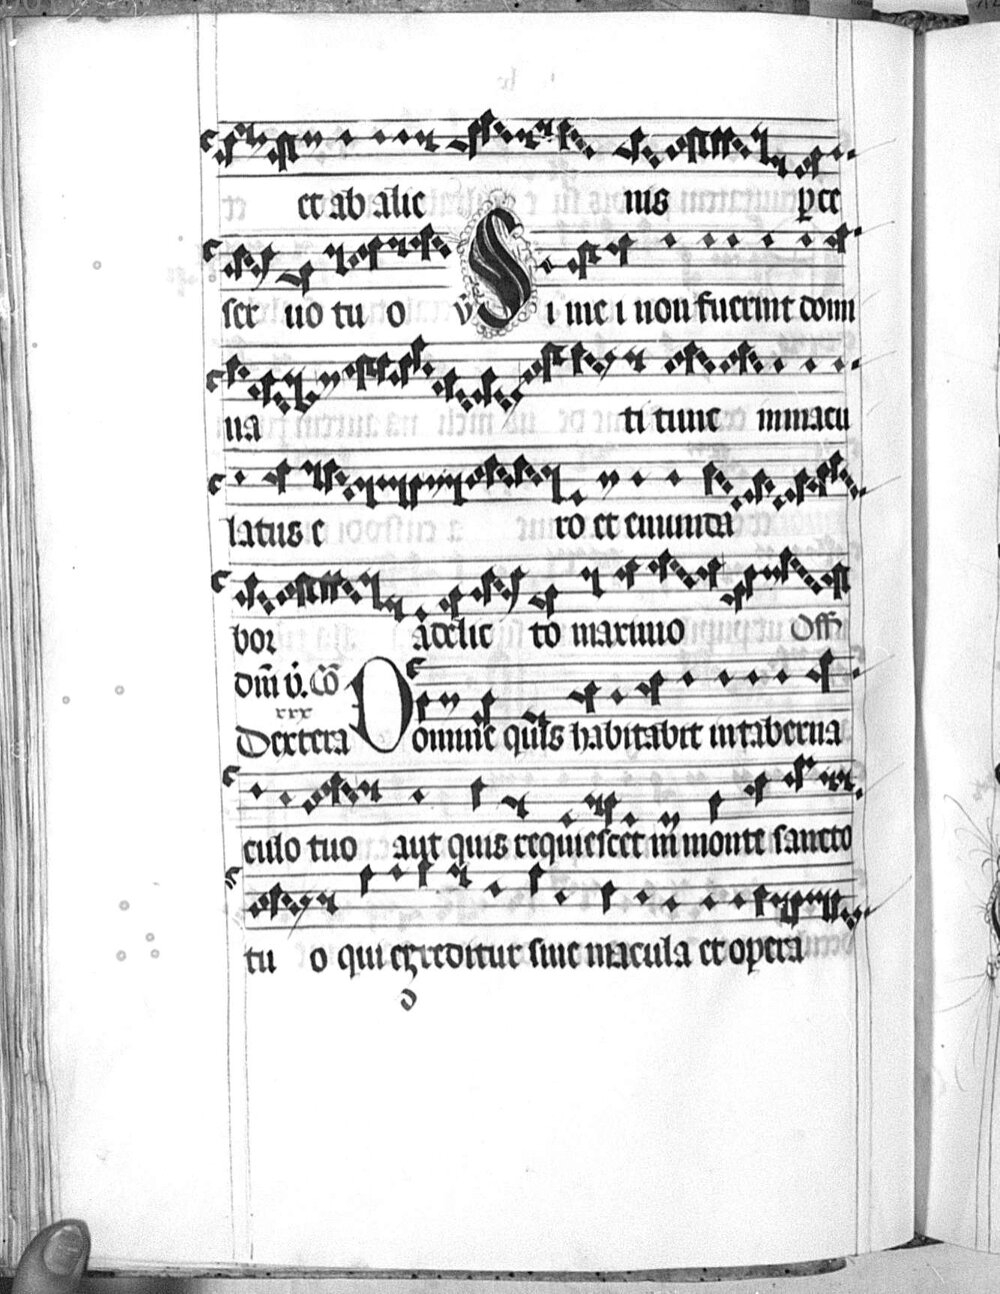 et ab alie nis ꝑce
ser uo tu o v̓ Si me i non fuerint domi
na ti tunc inmacu
latus e ro et emunda
bor a delic to maximo Off
dñi v̓. Cõ
xxx
Dextera Domine quis habitabit in taberna
culo tuo aut quis requiescet in monte sancto
tu o qui egreditur sine macula et oꝑera